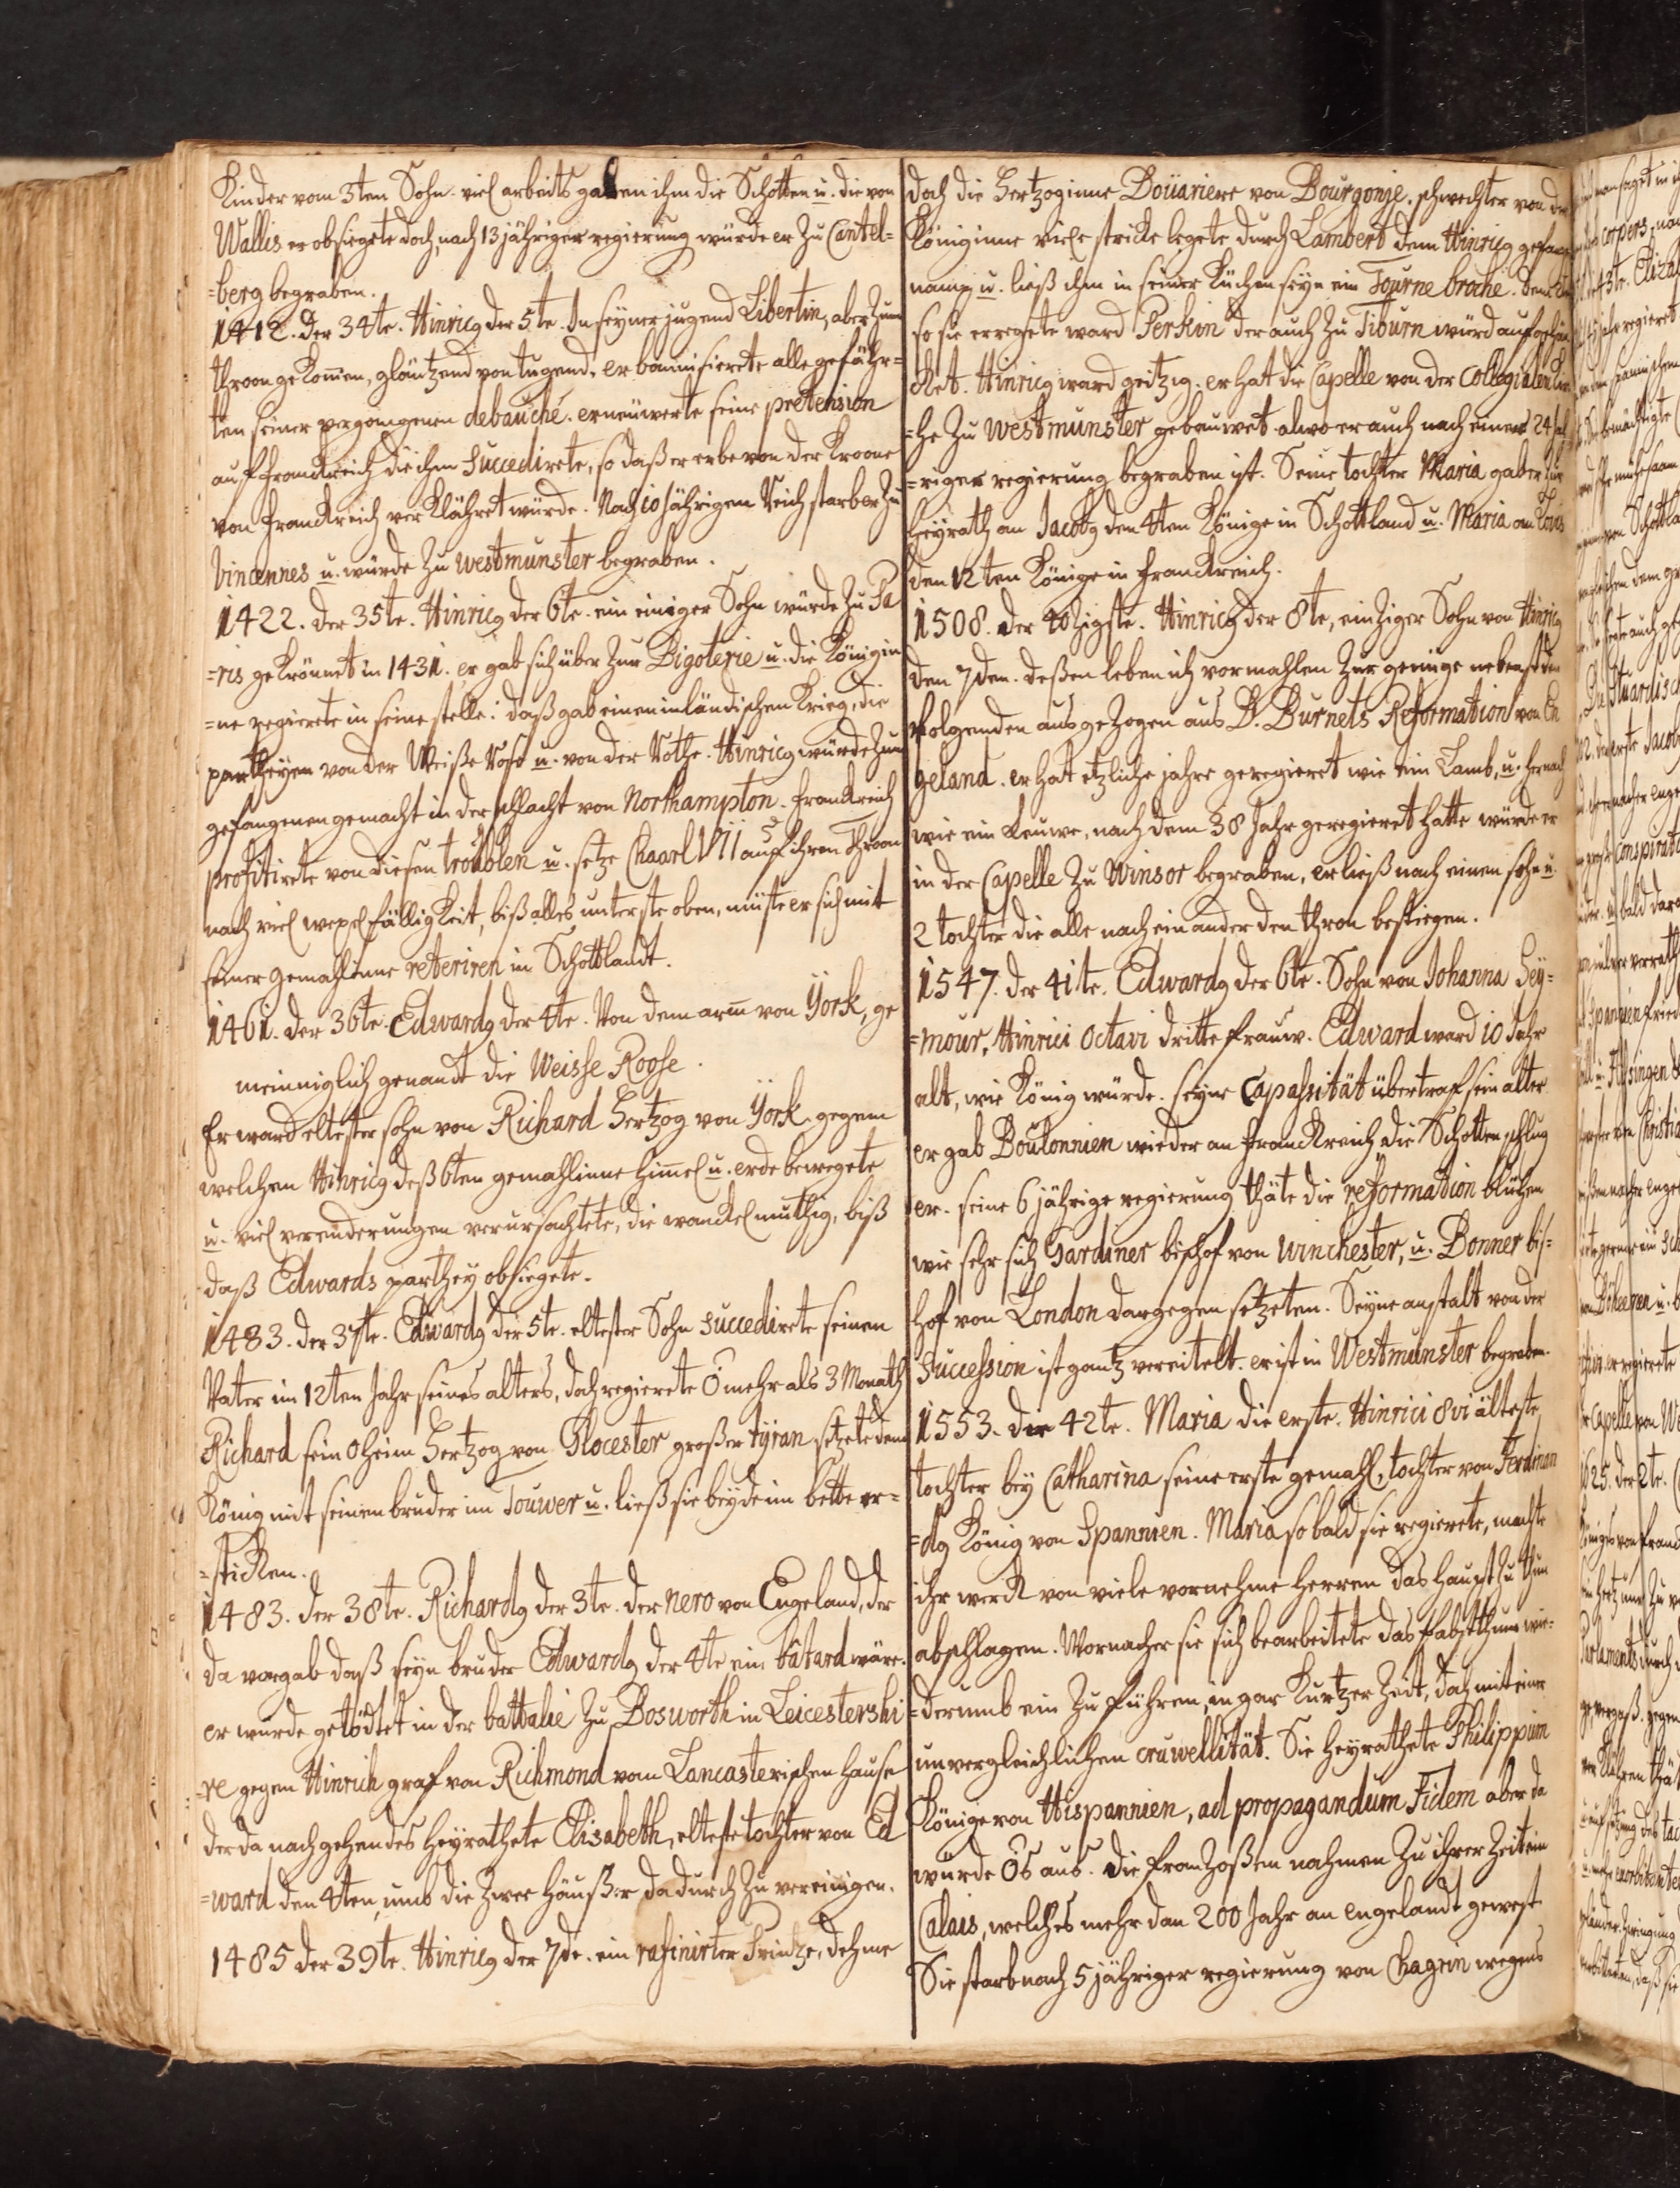 Kinder vom 3ten Sohn. viel arbeits gaben ihm die Schotten u. die von
Wallis er obsiegete doch, nach 13 jähriger regierung würde er zu Cantel=
=berg begraben.
1412. der 34te. Hinricg der 5te. In seyner jugend Libertin, aber zum
throon gekomen, gläntzend von tugend. er bannisierete alle gefähr=
ten seiner vergangenen debauché. erneüwerte seine pretension
auf franckreich die ihm Succedirete, so daß er erbe von der Kroone
von Franckreich verklähret würde. Nach 10 Jährigem Reich starb er zu
Vincennes u. würde zu westmunster begraben.
1422. der 35te. Hinricg der 6te. ein einiger Sohn würde zu Pa
=ris gekrönnet in 1431. er gab sich über zur Bigoterie u. die Königin
=ne regierete in seine stelle: daß gab einen inländischen Krieg, die
partheyen von der Weiße Rose u. von der Rothe. Hinricg würde zum
gefangenen gemacht in der schlacht von Northampton. franckreich
profitirete von diesen troublen u. setze Chaarl VII auf ihren Throon
nach viel wexelfälligkeit, biß alles unterste oben, müste er sich mit
seiner gemahlinne reteriren in Schottlandt.
1461. der 36te. Edwardg der 4te. Von dem arm von York, ge
meinniglich genandt die Weisse Roose.
Er ward eltester sohn von Richard Hertzog von York. gegen
welchen Hinricg deß 6ten gemahlinne himmel u. erde bewegete
u. viel verenderungen verursachtete, die wanckelmuthig, biß
daß Edwards parthey obsiegete.
1483. der 37te. Edwardg der 5te. eltester Sohn succedirete seinen
Vater im 12ten Jahr seines alters, doch regierete O mehr als 3 Monath
Richard sein Oheim Hertzog von Glocester großer tÿran setzete den
König mit seinen bruder im Touwer u. ließ sie beyde im bette er=
=sticken.
1483. der 38te. Richardg der 3te. der nero von Engeland, der
da vorgab daß seyn bruder Edwardg der 4te ein bâtard wäre.
er würde getödtet in der battalie zu Bosworth in Leicestershi
=re gegen Hinrich graf von Richmond vom Lancasterischen hause
der da nachgehendes heyrathete Elisabeth, elteste tochter von Ed
=ward den 4ten, umb die zwee häußer dadurch zu vereinigen.
1485 der 39te. Hinricg der 7de. ein rafinirter Printze, dehme
doch die Hertzoginne Doüariere von Bourgonje. schwechter von der
Königinne viele stricke legete durch Lambert dem Hinricg gefan
namg u. ließ ihm in seiner küchen seyn ein Tourne broche.
so sie erregete ward Perkin der auch zu Tiburn würd aufgehän
cket. Hinricg ward geitzig. er hat die Capelle von der Collegialen Kir
=he zu westmunster gebauwet alwo er auch nach einer 24 jäh
=riger regierung begraben ist. Seine tochter Maria gab er zur
heyrath an Jacobg den 4ten Könige in Schottland u. Maria an Louis
den 12ten Könige in franckreich.
1508. der 40zigste. Hinricg der 8te, einziger Sohn von Hinricg
den 7den. deßen leben ich vormahlen zur genüge nebenst den
folgenden ausgezogen aus D. Burnets Reformation von En
geland. er hat etzliche jahre geregieret wie ein Lamb, u. hernach
wie ein Leuwe, nach dem 38 Jahr geregieret hatte würde er
in der Capelle zu Winsor begraben, er ließ nach einen sohn u.
2 tochter die alle nach einander den thron bestiegen.
1547. der 41te. Edwardg der 6te. Sohn von Johanna Sey=
=mour, Hinrici Octavi dritte frauw. Edward ward 10 Jahr
alt, wie König würde. seyne Capassität übertraf sein alter
er gab Boulonnien wieder an franckreich die Schotten schlug
er. seine 6 jährige regierung thäte die reformation blühen
wie sehr sich Gardiner bischof von Winchester, u. Bonner bis=
hof von London dargegen setzeten. Seyne anstalt von der
Succession ist gantz vereitelt. er ist in Westmunster begraben.
1553. der 42te. Maria die erste. Hinrici 8vi älteste
tochter bey Catharina seine erste gemahl, tochter von Ferdinan
=dg König von Spannien. Maria so bald sie regierete, machte
ihr werck von viele vornehme Herren das haupt zu thun
abschlagen. Wornacher sie sich bearbeitete das Pabstthum wie=
=derumb ein zu führen, in gar kurtzer zeit, doch mit einer
unvergleichlichen cruwellität. Sie heyrathete Philippum
Könige von Hispannien, ad propagandum Fidem aber da
würde Os aus. die franzoßen nahmen zu ihrer zeit ein
Calais, welches mehr dan 200 Jahr an engelandt gewest
Sie starb nach 5 jähriger regierung von Chagrin wegens